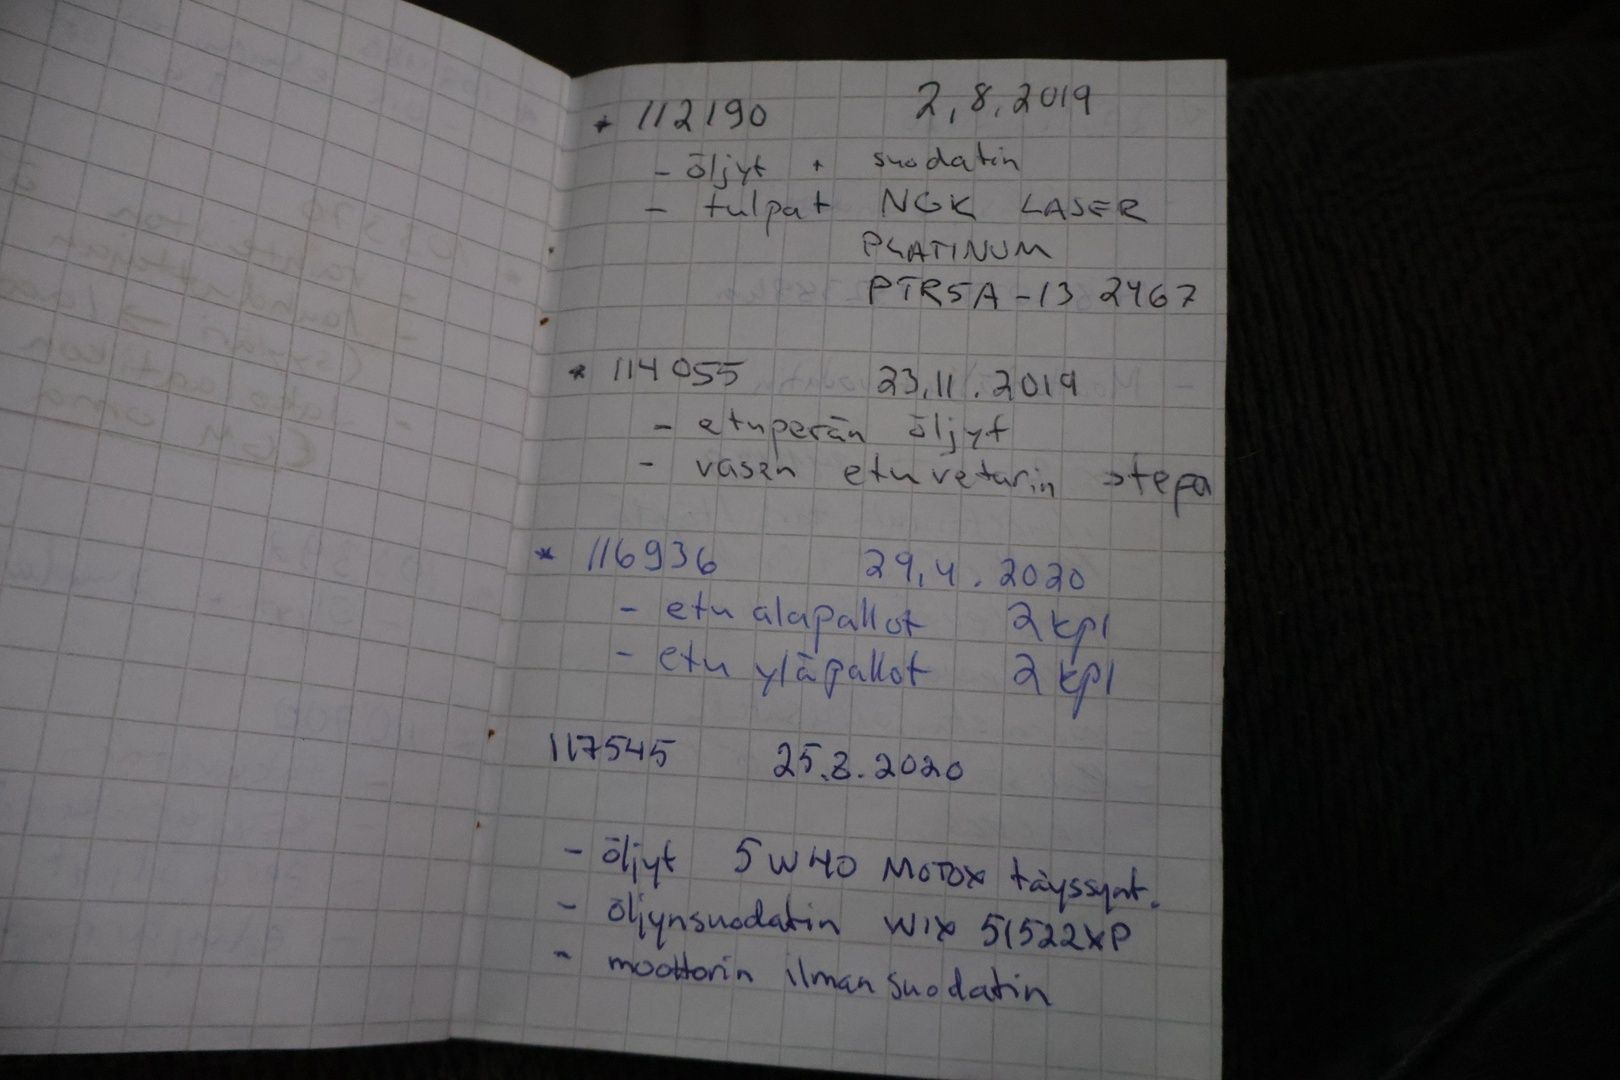 * 112190 2.8.2019
- öljyt + suodatin
- tulpat NGK LASER
PLATINUM
PTR5A-13 2467
* 114055 23.11.2019
- etuperän öljyt
- vasen etuvetarin stepa
* 116936 29.4.2020
- etu alapallot 2 kpl
- etu yläpallot 2 kpl
117545 25.8.2020
- öljyt 5W40 MOTOX täyssynt.
- öljynsuodatin WIX 51522XP
- moottorin ilman suodatin